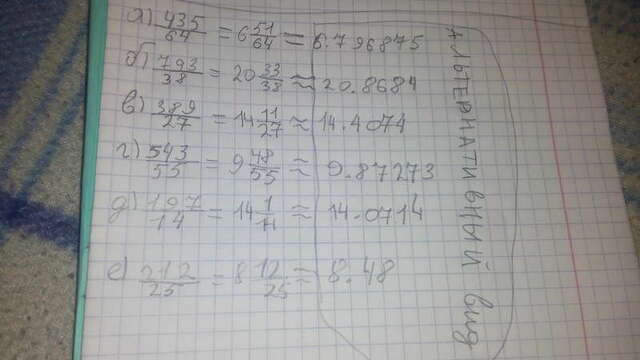 а) 435/64 = 6 51/64 = 6.796875
б) 793/38 = 20 33/38 ≈ 20.8684
в) 389/27 = 14 11/27 ≈ 14.4074
г) 543/55 = 9 48/55 ≈ 9.87273
д) 197/14 = 14 1/14 ≈ 14.0714
е) 212/25 = 8 12/25 = 8.48
Альтернативный вид